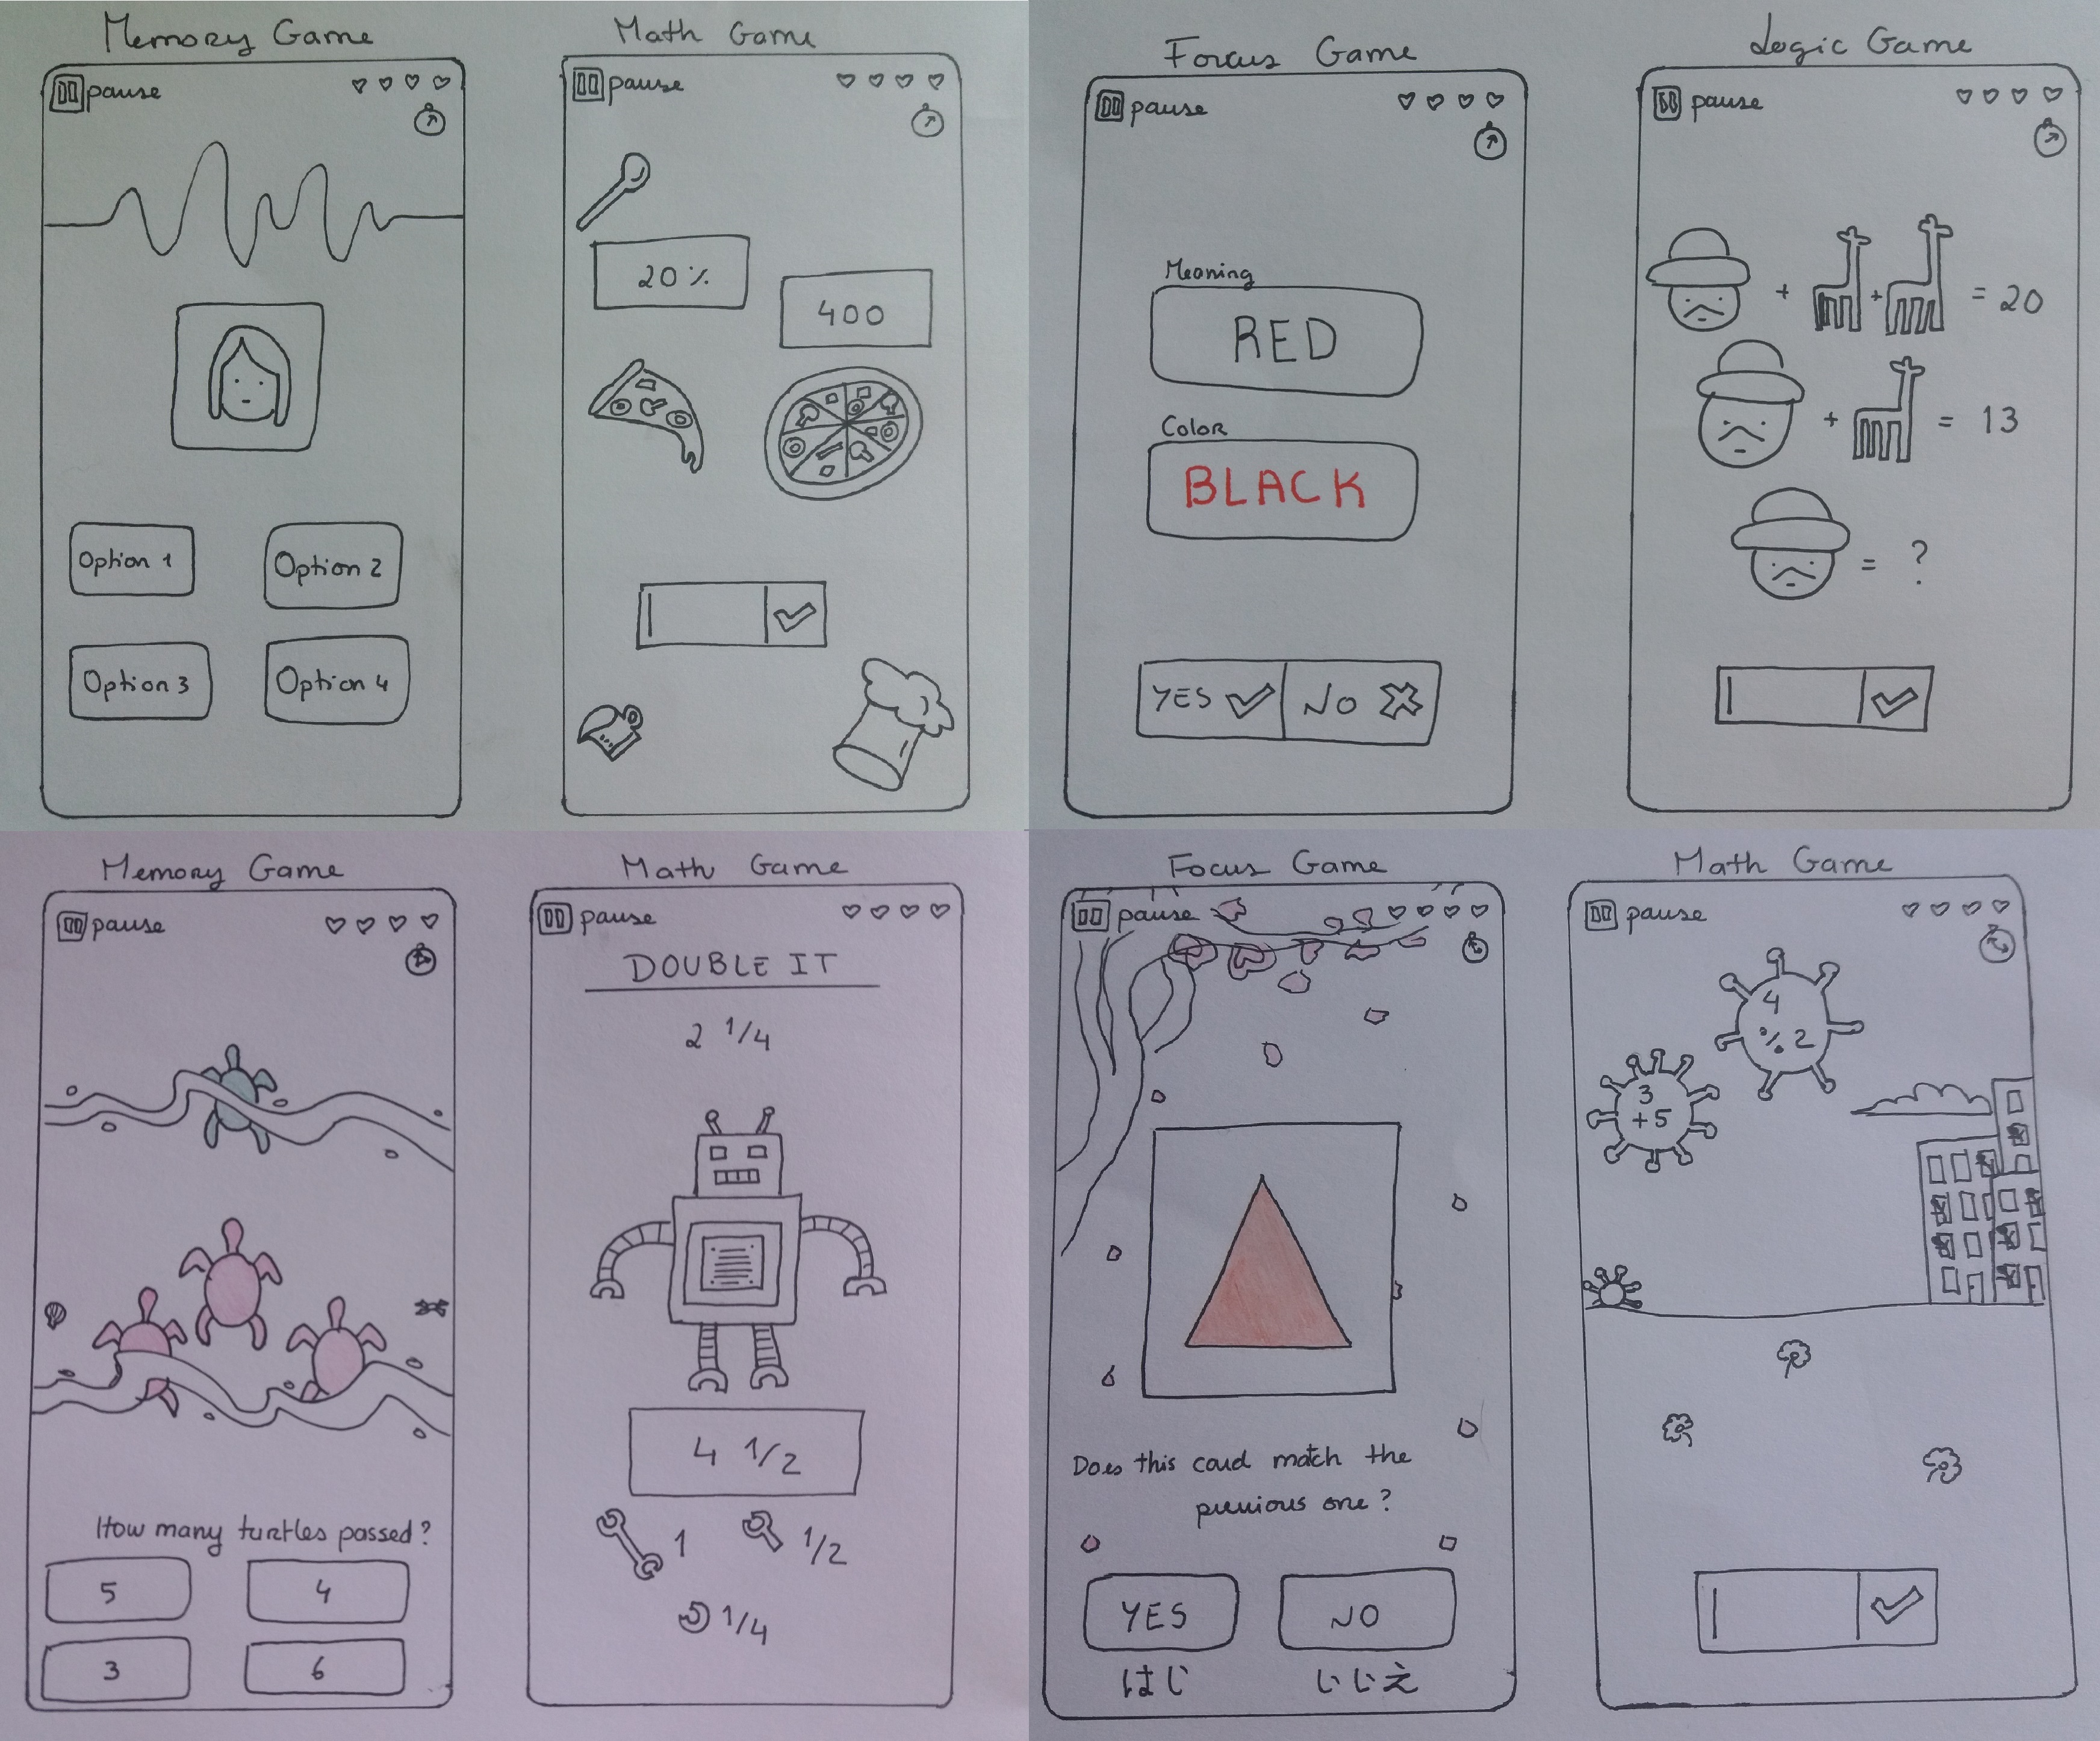 Memory Game
pause
Option 1
Option 2
Option 3
Option 4
Math Game
pause
20 %
400
Focus Game
pause
Meaning
RED
Color
BLACK
YES
NO
Logic Game
pause
+ + = 20
+ = 13
= ?
Memory Game
pause
How many turtles passed?
5
4
3
6
Math Game
pause
DOUBLE IT
2 1/4
4 1/2
1
1/2
1/4
Focus Game
pause
Does this card match the
previous one?
YES
NO
はじ
いいえ
Math Game
pause
4
% 2
3
+5